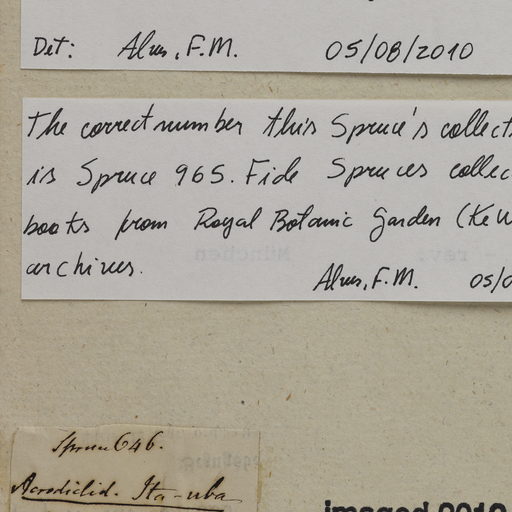 Det: Alves, F.M. 05/08/2010
The correct number this Spruce's collect
is Spruce 965. Fide Spruces collec
books from Royal Botanic Garden (Kew
archives.
Alves, F.M. 05/0
Spruce 646.
Acrodiclid. Ita-uba
imaged 2010